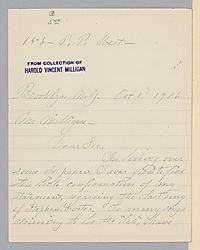 158 - P. P. West -
FROM COLLECTION OF
HAROLD VINCENT MILLIGAN
Brooklyn N.Y. Oct 1st 1916
Mr. Milligan
Dear Sir.
On looking over
some old papers, I was glad to find
the little confirmation of my
statement, regarding the last song
of Stephen Foster. So many songs
claiming to be the "last", I have